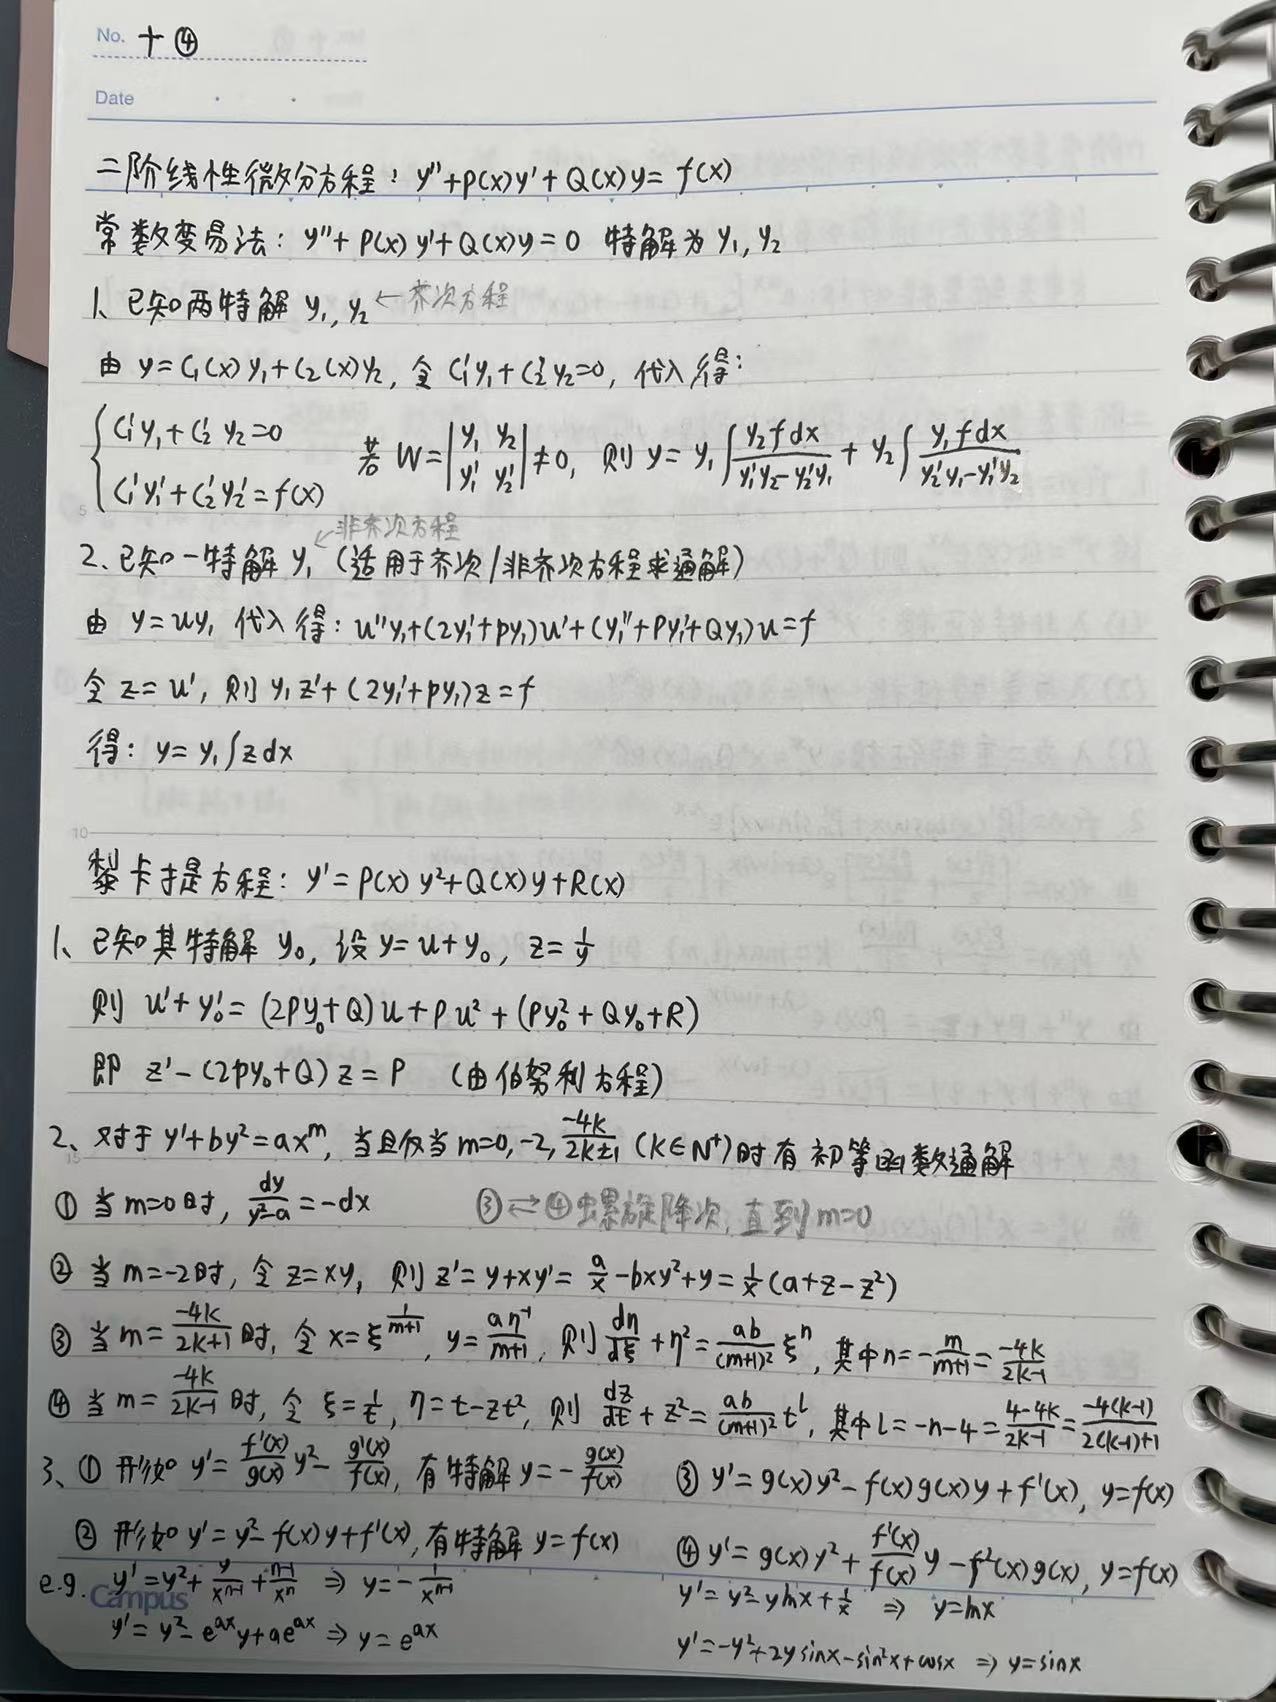 No. 十④
Date
二阶线性微分方程: y''+p(x)y'+Q(x)y=f(x)
常数变易法: y''+P(x)y'+Q(x)y=0 特解为 y₁, y₂
1、已知两特解 y₁, y₂ ←齐次方程
由 y=C₁(x)y₁+C₂(x)y₂, 令 C₁'y₁+C₂'y₂=0, 代入得:
{ C₁'y₁+C₂'y₂=0
C₁'y₁'+C₂'y₂'=f(x)
若 W=|y₁ y₂; y₁' y₂'|≠0, 则 y=y₁∫(y₂fdx)/(y₁'y₂-y₂'y₁) + y₂∫(y₁fdx)/(y₂'y₁-y₁'y₂)
5
2、已知一特解 y₁ ←非齐次方程 (适用于齐次/非齐次方程求通解)
由 y=uy₁ 代入得: u''y₁+(2y₁'+py₁)u'+(y₁''+Py₁'+Qy₁)u=f
令 z=u', 则 y₁z'+(2y₁'+py₁)z=f
得: y=y₁∫zdx
10
黎卡提方程: y'=P(x)y²+Q(x)y+R(x)
1、已知其特解 y₀, 设 y=u+y₀, z=1/y
则 u'+y₀'=(2Py₀+Q)u+Pu²+(Py₀²+Qy₀+R)
即 z'-(2py₀+Q)z=P (由伯努利方程)
2、对于 y'+by²=ax^m, 当且仅当 m=0,-2, -4k/(2k±1) (k∈N⁺)时有初等函数通解
15
① 当 m=0时, dy/(y²-a)=-dx ③⇌④螺旋降次, 直到m=0
② 当 m=-2时, 令 z=xy, 则 z'=y+xy'=a/x-bxy²+y=1/x(a+z-z²)
③ 当 m=-4k/(2k+1)时, 令 x=ξ^(1/(m+1)), y=aη⁻¹/(m+1), 则 dη/dξ+η²=ab/(m+1)² ξⁿ, 其中n=-m/(m+1)=-4k/(2k-1)
④ 当 m=-4k/(2k-1)时, 令 ξ=1/t, η=t-zt², 则 dz/dt+z²=ab/(m+1)² t^l, 其中 l=-n-4=(4-4k)/(2k-1)=-4(k-1)/(2(k-1)+1)
3、① 形如 y'=f'(x)/g(x) y²-g'(x)/f(x), 有特解 y=-g(x)/f(x)
③ y'=g(x)y²-f(x)g(x)y+f'(x), y=f(x)
② 形如 y'=y²-f(x)y+f'(x), 有特解 y=f(x)
④ y'=g(x)y²+f'(x)/f(x) y-f²(x)g(x), y=f(x)
e.g. y'=y²+y/x^(n-1)+(n-1)/xⁿ ⇒ y=-1/x^(n-1)
y'=y²-ylnx+1/x ⇒ y=lnx
Campus
y'=y²-e^(ax)y+ae^(ax) ⇒ y=e^(ax)
y'=-y²+2ysinx-sin²x+cosx ⇒ y=sinx